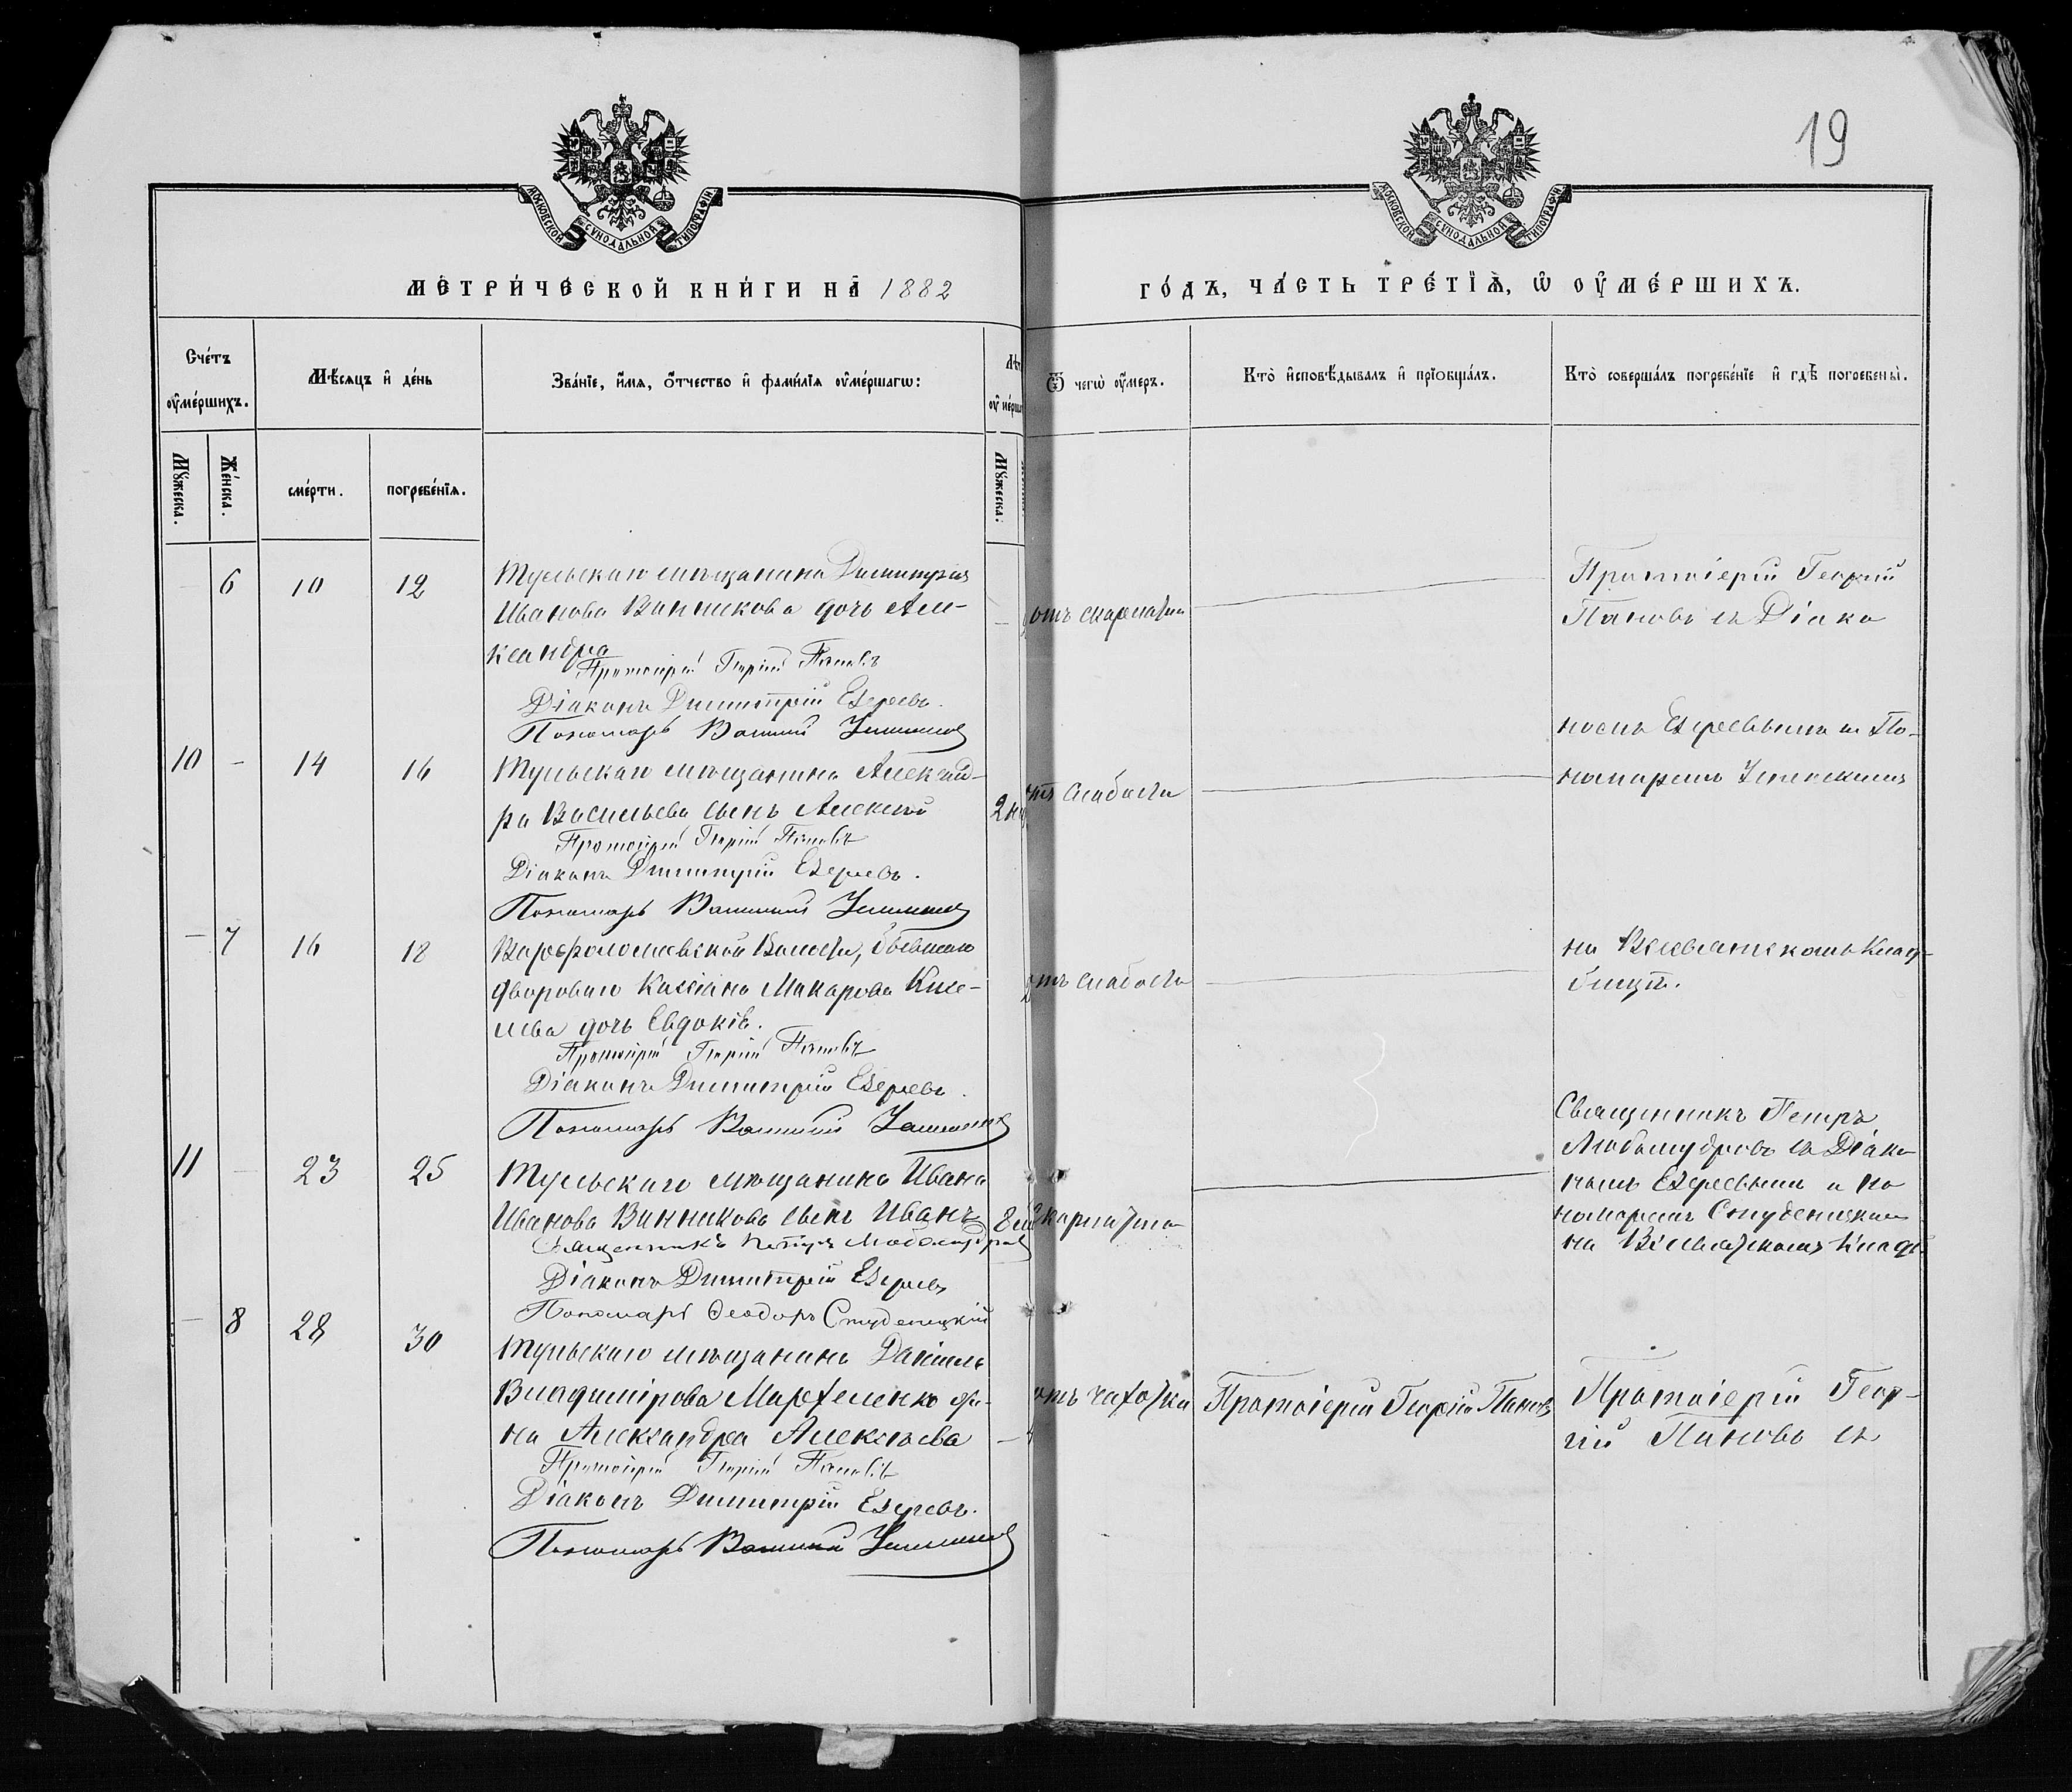 19
МОСКОВСКОЙ СѴНОДАЛЬНОЙ ТИПОГРАФІИ
МОСКОВСКОЙ СѴНОДАЛЬНОЙ ТИПОГРАФІИ
МЕТРИ́ЧЕСКОЙ КНИ́ГИ НА 1882
ГО́ДЪ, ЧА́СТЬ ТРЕ́ТІѦ, Ѡ ОУ҆МЕ́РШИХЪ.
Сче́тъ оу҆ме́ршихъ.
Мѣ́сяцъ и҆ де́нь
Зва́нїе, и҆́мя, ѻ҆́тчество и҆ фами́лїя оу҆ме́ршагѡ:
Ѿ чегѡ̀ оу҆́меръ.
Кто̀ и҆сповѣ́дывалъ и҆ прїѡбща́лъ.
Кто̀ соверша́лъ погребе́нїе и҆ гдѣ̀ погребены̀.
Мꙋ́жеска.
Же́нска.
сме́рти.
погребе́нїя.
Мꙋ́жеска.
6 10 12
Тульскаго мѣщанина Димитрія
Иванова Винникова дочь Але-
ксандра
Протоіерей Георгій Пановъ
Діаконъ Димитрій Езеревъ.
Пономарь Василий
отъ скарлатин
Протоіерей Георгій
Пановъ съ Діако
номъ Езеревымъ и По-
номаремъ Успенскимъ
10 - 14 16
Тульскаго мѣщанина Александ-
ра Васильева сынъ Алексѣй
Протоіерей Георгій Пановъ
Діаконъ Димитрій Езеревъ.
Пономарь Василий
2 н
отъ слабости
- 7 16 18
Варфоломеевской Волости, бывшаго
двороваго Кассіана Макарова Кисе-
лева дочь Евдокія.
Протоіерей Георгій Пановъ
Діаконъ Димитрій Езеревъ.
Пономарь Василий
отъ слабости
на Всехсвятскомъ Клад-
бищѣ.
11 - 23 25
Тульскаго мѣщанина Ивана
Иванова Винникова сынъ Иванъ
Священникъ Петръ Любомудров
Діаконъ Димитрій Езеревъ
Пономарь Ѳеодоръ Студенецкій
8 м
Скарлатина
Священникъ Петръ
Любомудровъ съ Діако
номъ Езеревымъ и по
номаремъ Студенецкимъ
на Всехсвятскомъ кладб.
- 8 28 30
Тульскаго мѣщанина Даніила
Владимірова Марфеленко же-
на Александра Алексѣева
Протоіерей Георгій Пановъ
Діаконъ Димитрій Езеревъ.
Пономарь Василий
отъ чахотки
Протоіерей Георгій Пановъ
Протоіерей Геор-
гій Пановъ съ